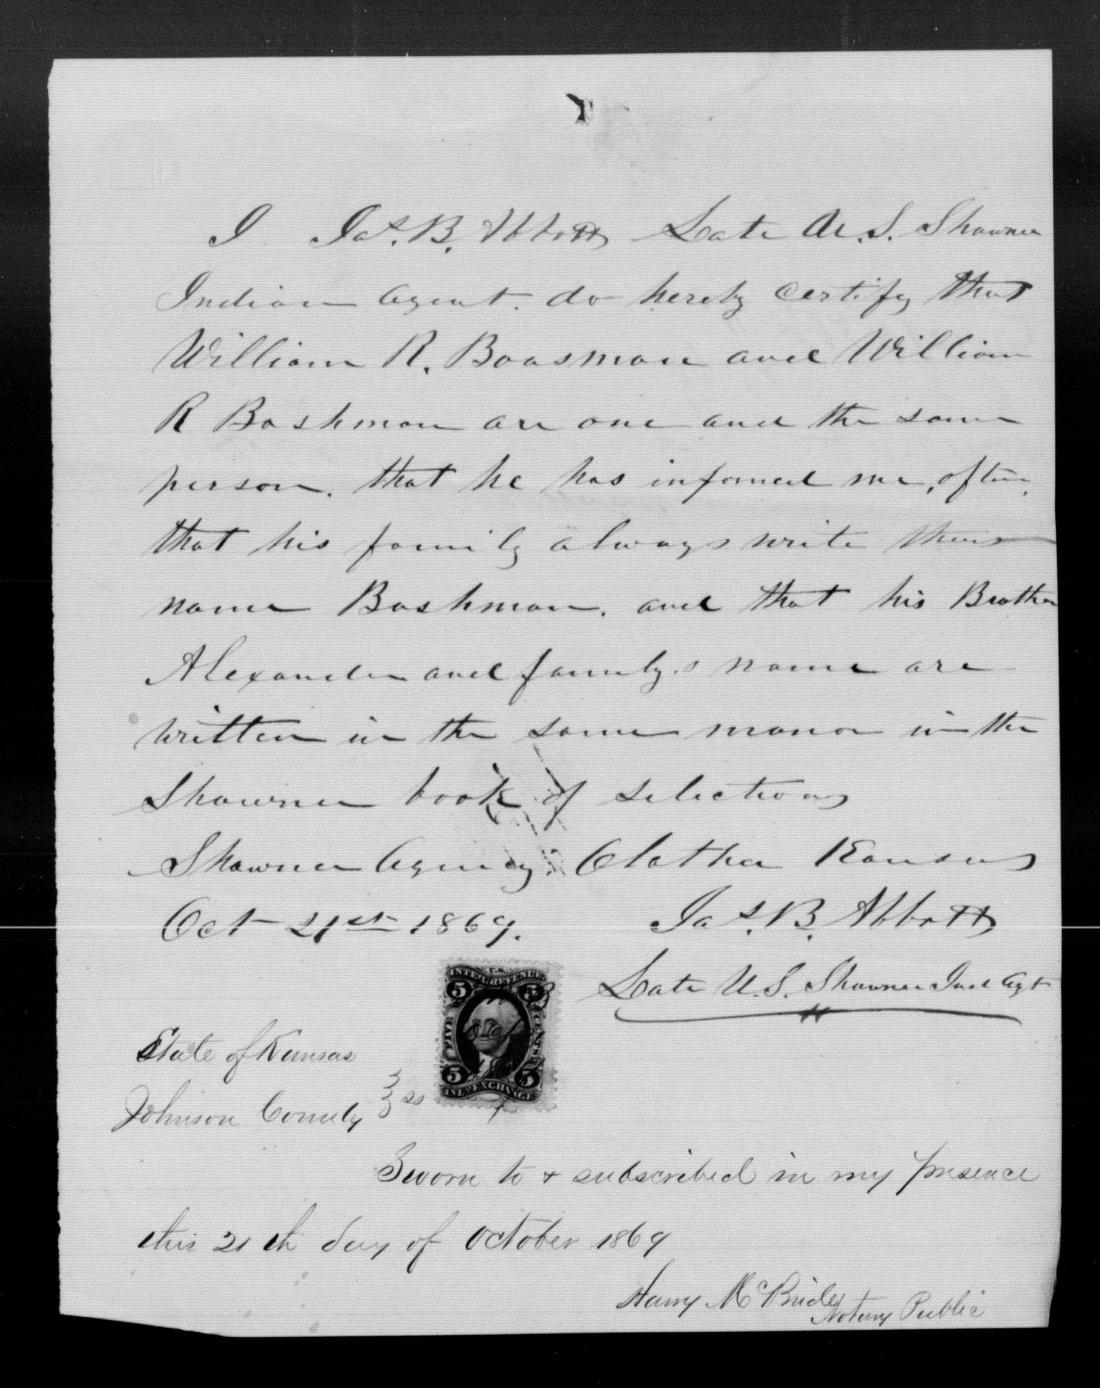 I Jas. B. Abbott Late U.S. Shawnee
Indian Agent. do hereby certify that
William R. Boasman and William
R Bashman are one and the same
person. that he has informed me, often,
that his family always write their
name Bashman. and that his Brother
Alexander and family.s name are
written in the same manor in the
Shawnee book of selections
Shawnee Agency. Olathe Kansas
Oct 21st 1869.
Jas. B. Abbott
Late U.S. Shawnee Ind Agt
U.S.
INTER. REVENUE
5 5
FIVE CENTS
5 5
INL. EXCHANGE
State of Kansas
Johnson County ss
Sworn to & subscribed in my presence
this 21th day of October 1869
Harry McBride
Notary Public